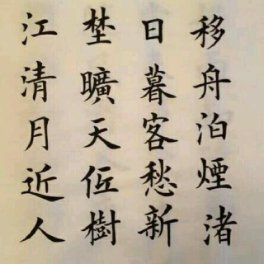 移舟泊煙渚
日暮客愁新
埜曠天低樹
江清月近人